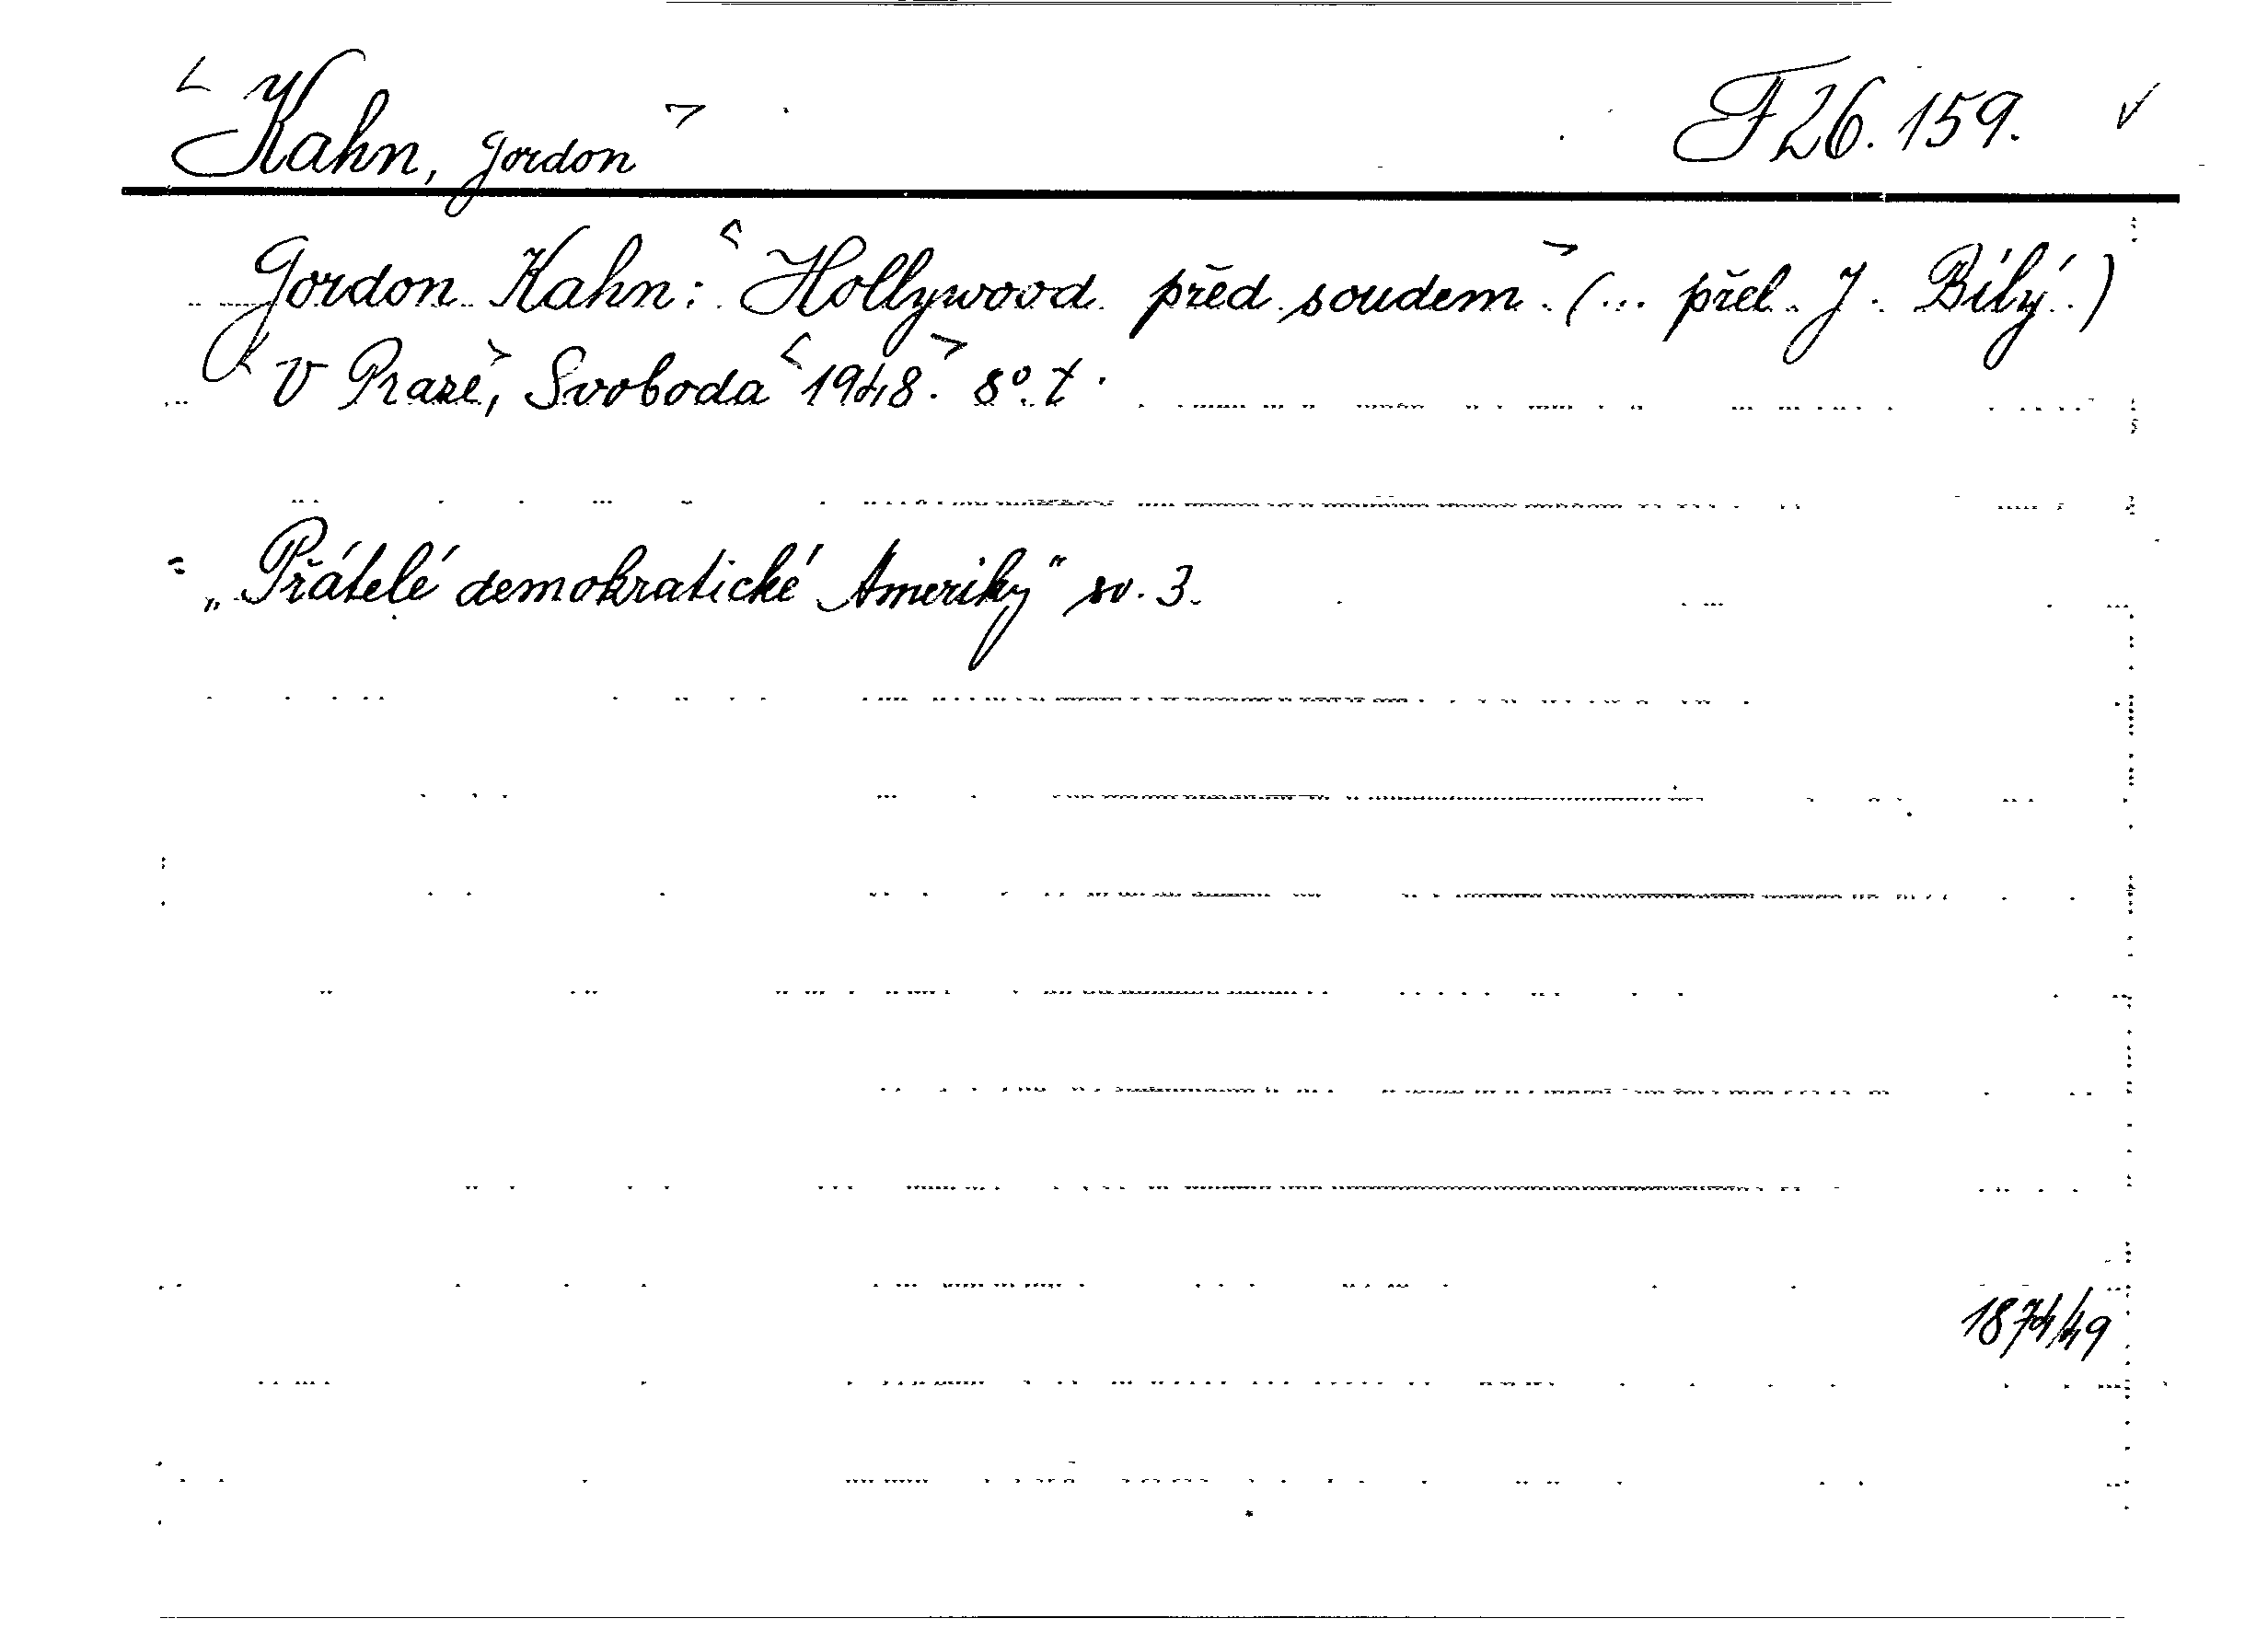 <Kahn, Gordon> F 26.159. ✓
Gordon Kahn: <Hollywood před soudem.> (... přel. J. Bílý.)
<V Praze,> Svoboda <1948.> 8°. t.
= „Přátelé demokratické Ameriky" sv. 3.
1874/49